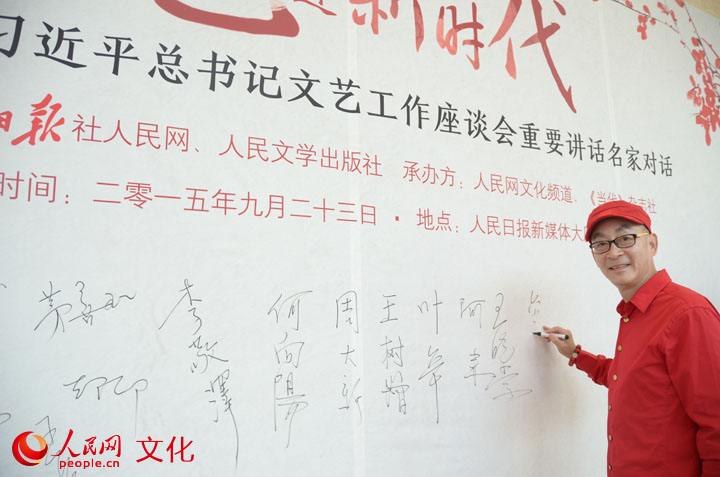 新时代
习近平总书记文艺工作座谈会重要讲话名家对话
日报社人民网、人民文学出版社 承办方：人民网文化频道、《当代》杂志社
时间：二零一五年九月二十三日 · 地点：人民日报新媒体大
李敬泽
何向陽
周大新
王树增
叶辛
阿来
人民网 文化
people.cn